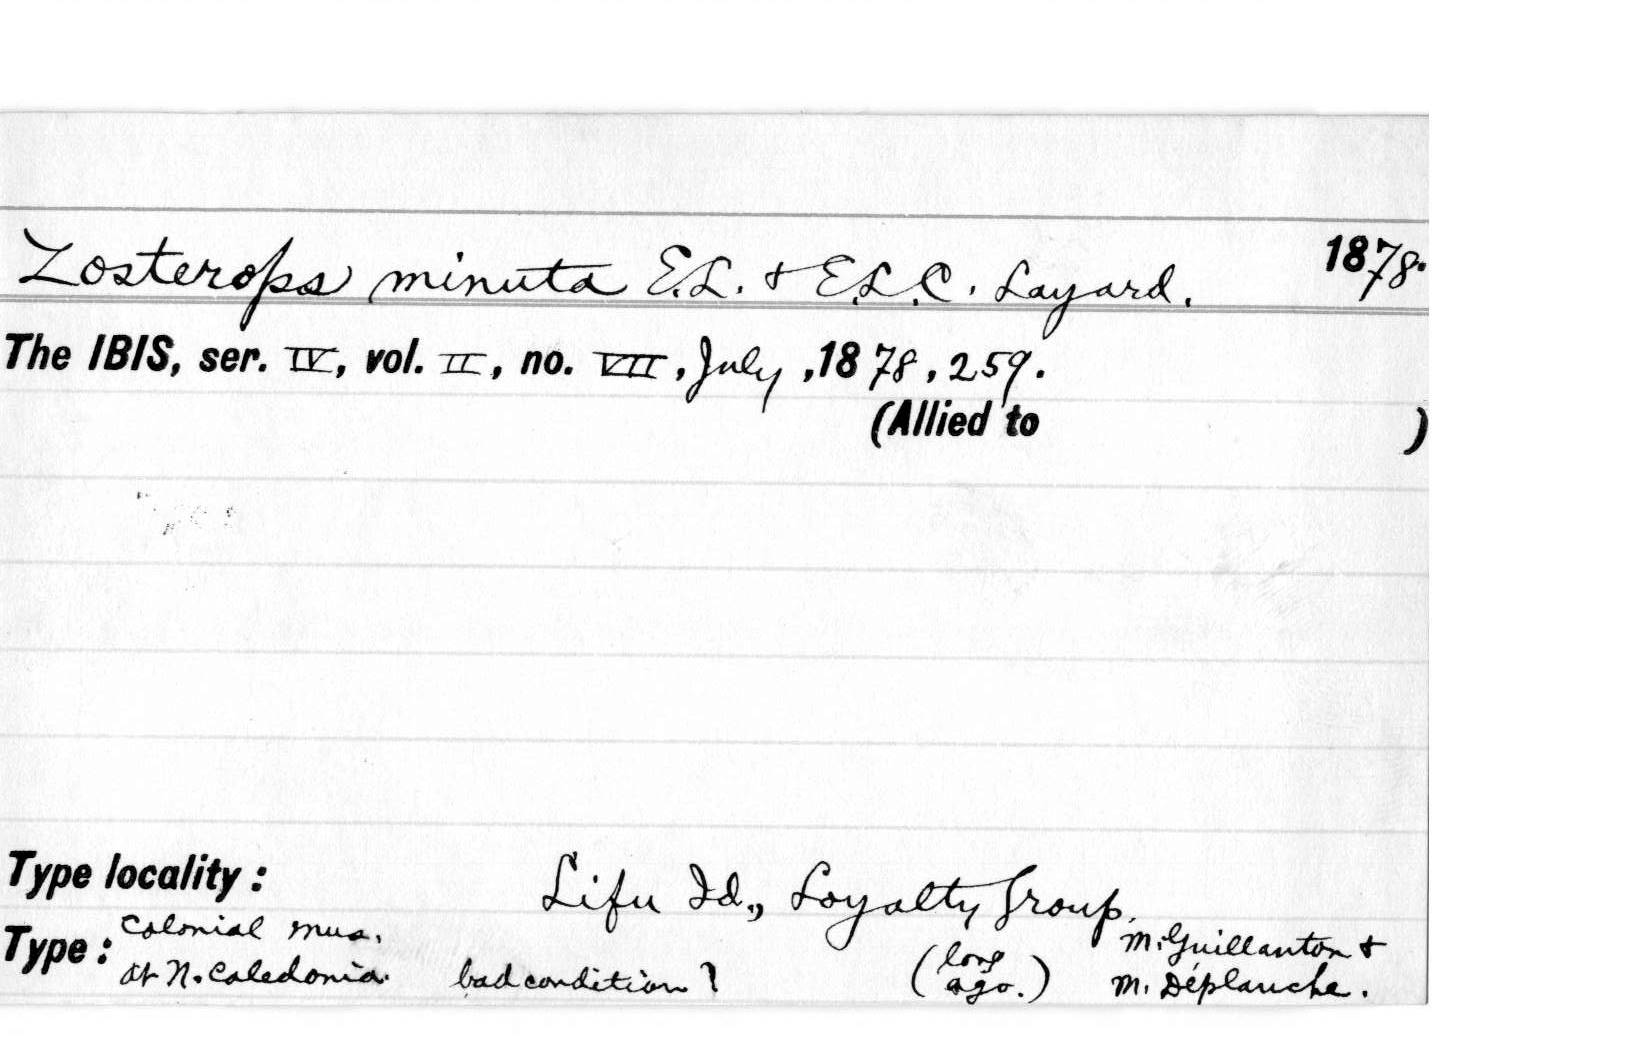 Zosterops minuta E.L. & E.L.C. Layard. 1878.
The IBIS, ser. IV, vol. II, no. VII, July, 1878, 259.
(Allied to )
Type locality: Lifu Id., Loyalty Group.
Type: Colonial Mus. at N. Caledonia. bad condition? (long ago.) M. Guillanton & M. Déplanche.